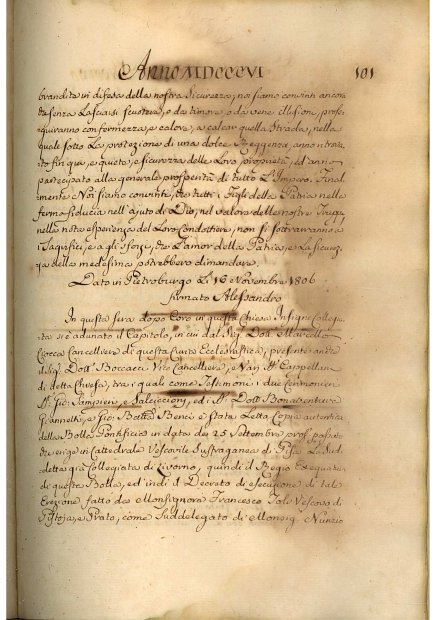 Anno MDCCCVI
101
brandita in difesa della nostra Sicurezza, noi siamo convinti ancora
che senza Lasciarsi scuotere, o da timore, o da vane illusioni, prose-
guiranno con fermezza, e calore, a calcar quella Strada, nella
quale sotto La protezione di una dolce Reggenza, anno trova-
to fin qui, e quiete, e sicurezza delle Loro proprietà, ed anno
partecipato alla generale prosperità di tutto L'Impero. Final-
mente Noi siamo convinti, che tutti i Figli della Patria nella
ferma fiducia nell'ajuto di Dio, nel valore delle nostre Truppe,
nella nota esperienza del Loro Condottiere, non si sottrarranno a
i Sagrifici, e agli sforzi, che L'amor della Patria, e La sicurez-
za della medesima potrebbero dimandare.
Dato in Pietroburgo Li 16 Novembre 1806
firmato Alessandro
In questa sera dopo Coro in questa Chiesa Insigne Collegia-
ta si è adunato il Capitolo, in cui dal Sig. Dott. Marcello
Ciocca Cancelliere di questa Curia Ecclesiastica, presente anche
il Sig. Dott. Boccacci Vice Cancelliere, e Varj M. Cappellani
di detta Chiesa, tra i quali come Testimoni i due Cerimonieri
M. Gio: Sampieri, e ed i M. Dott. Bonaventura
Giannetti, e Gio: Batta Benci è stata Letta Copia autentica
della Bolla Pontificia in data dei 25 Settembre pross. passato
che erige in Cattedrale Vescovile Suffraganea di Pisa La Sud-
detta già Collegiata di Livorno, quindi il Regio Exequatur
di questa Bolla, ed indi il Decreto di esecuzione di tale
Erezione fatto da Monsignore Francesco Toli Vescovo di
Pistoja, e Prato, come Suddelegato di Monsig. Nunzio